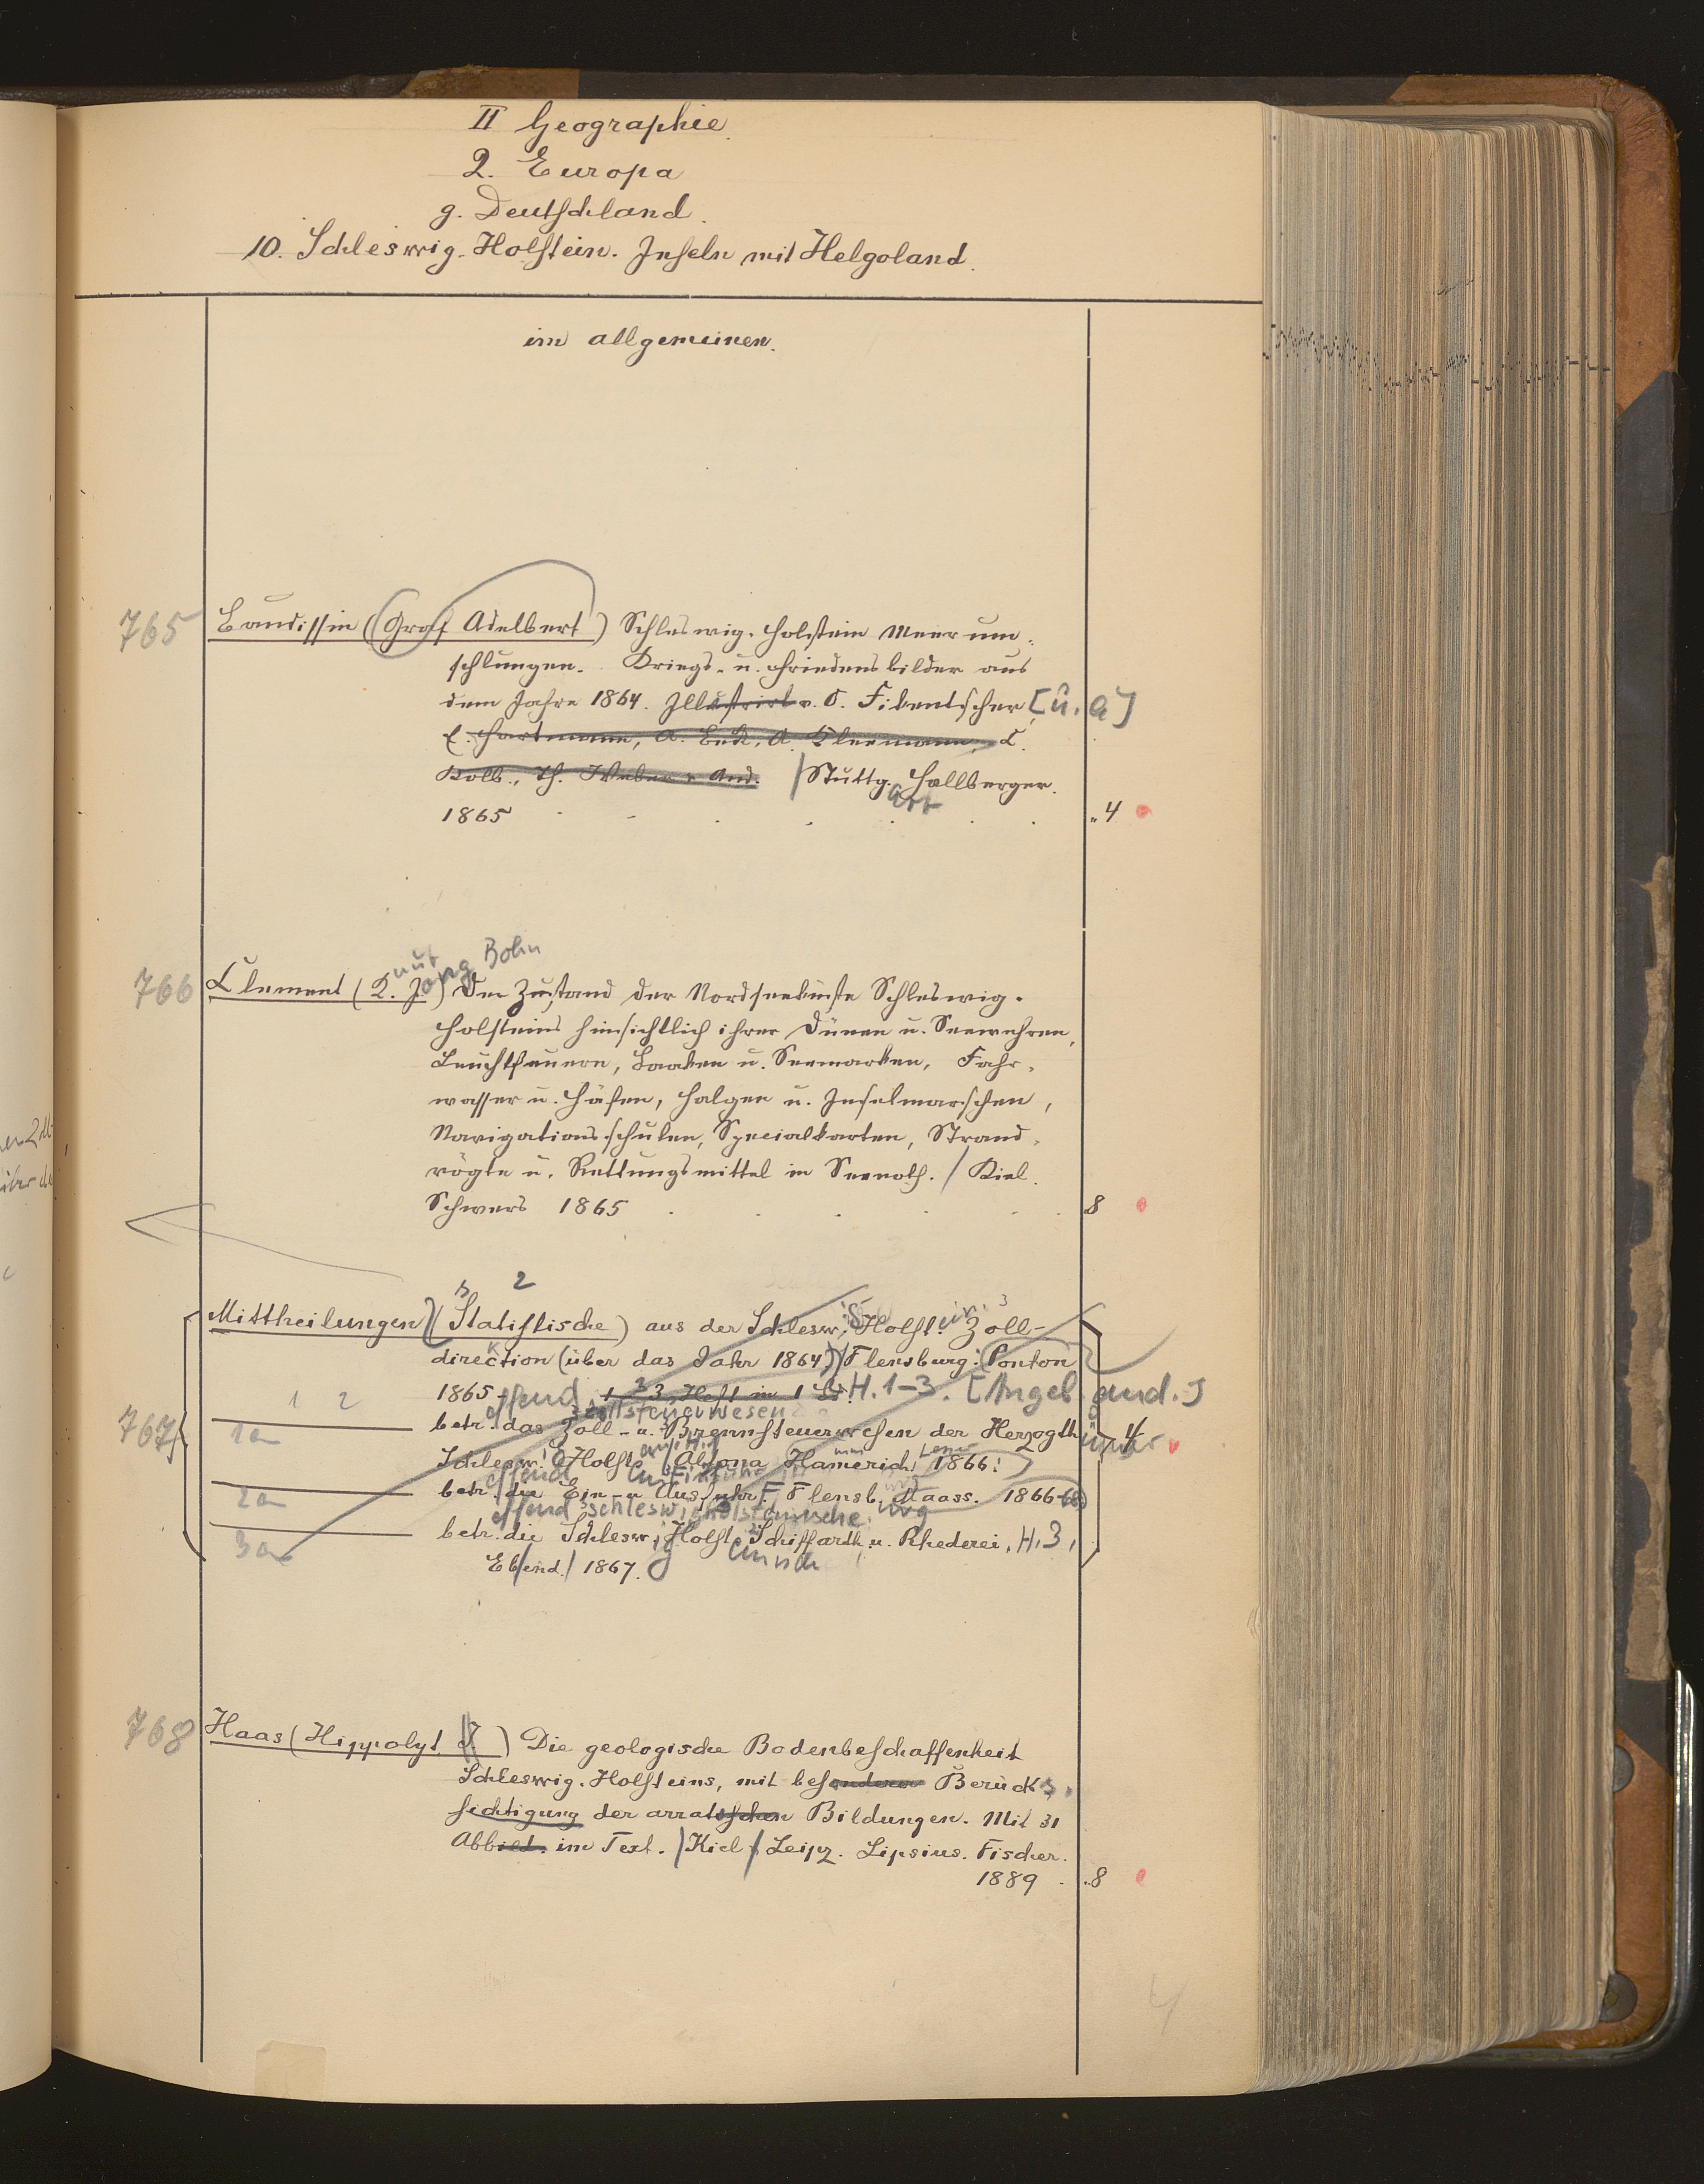 II Geographie.
2. Europa
g. Deutschland.
10. Schleswig-Holstein. Inseln mit Helgoland.
im allgemeinen.
765 Baudissin (Graf Adelbert) Schleswig-Holstein Meerum-
schlungen. Kriegs- u. Friedensbilder aus
dem Jahre 1864. Illustrirt v. O. Fikentscher [u. a]
E. Hartmann, A. Beck, A. Kleemann, C.
Kolb., Th. Weber u. And. / Stuttg. Hallberger.
art
1865 . . . . . . . „ 4
nut Jong Bohn
766 Clement (K. J.) Der Zustand der Nordseeküste Schleswig-
Holsteins hinsichtlich ihrer Dünen u. Seewehren,
Leuchtfeuern, Baaken u. Seemarken, Fahr-
wasser u. Häfen, Halgen u. Inselmarschen,
Navigationsschulen, Specialkarten, Strand-
vögte u. Rettungsmittel in Seenoth. / Kiel.
Schwers 1865 . . . . . . 8
2
Mittheilungen (Statistische) aus der Schlesw. Holst. Zoll-
direction (über das Jahr 1864) / Flensburg: Ponton
1 2 1865 3 Heft in 1 Bd. H. 1-3. [Angeb. and.]
767 1a betr. das Zoll- u. Brennsteuerwesen der Herzogth. 4
Schlesw. Holst. / Altona Hamerich 1866.
2a betr. die Ein- u. Ausfuhr. Flensb. Maass. 1866-68
schleswigholsteinische
3a betr. die Schlesw. Holst. Schiffarth u. Rhederei, H. 3,
Ebend. / 1867.
768 Haas (Hippolyt J.) Die geologische Bodenbeschaffenheit
Schleswig-Holsteins, mit besonderer Berück-
sichtigung der erratischen Bildungen. Mit 31
Abbild. im Text. / Kiel / Leipz. Lipsius. Fischer.
1889 . . 8